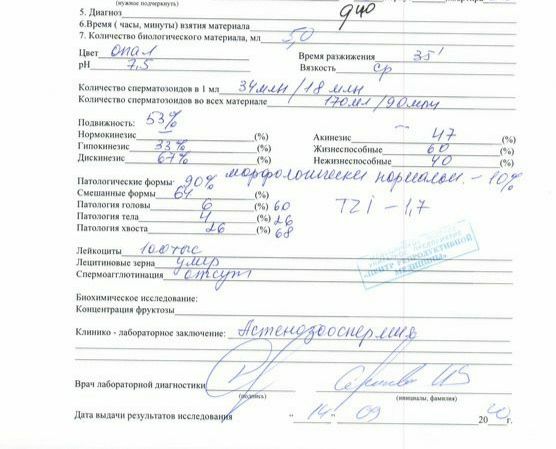 (нужное подчеркнуть)
5. Диагноз
6.Время ( часы, минуты) взятия материала
7. Количество биологического материала, мл 5,0
Цвет опал Время разжижения 35'
pH 7,5 Вязкость ср
Количество сперматозоидов в 1 мл 34млн/18 млн
Количество сперматозоидов во всех материале 170мл/90млн
Подвижность: 53%
Нормокинезис (%) Акинезис 47 (%)
Гипокинезис 33% (%) Жизнеспособные 60 (%)
Дискинезис 67% (%) Нежизнеспособные 40 (%)
Патологические формы 90% морфологически нормальн. - 10%
Смешанные формы 64
Патология головы 6 (%) 60 TZI - 1,7
Патология тела 4 (%) 26
Патология хвоста 26 (%) 68
Лейкоциты 100тыс
Лецитиновые зерна умер
Спермоагглютинация отсут
ЦЕНТР РЕПРОДУКТИВНОЙ
МЕДИЦИНЫ
Биохимическое исследование:
Концентрация фруктозы
Клинико - лабораторное заключение: Астенозооспермия
Врач лабораторной диагностики
(подпись) (инициалы, фамилия)
Дата выдачи результатов исследования " 14 " 09 20 г.